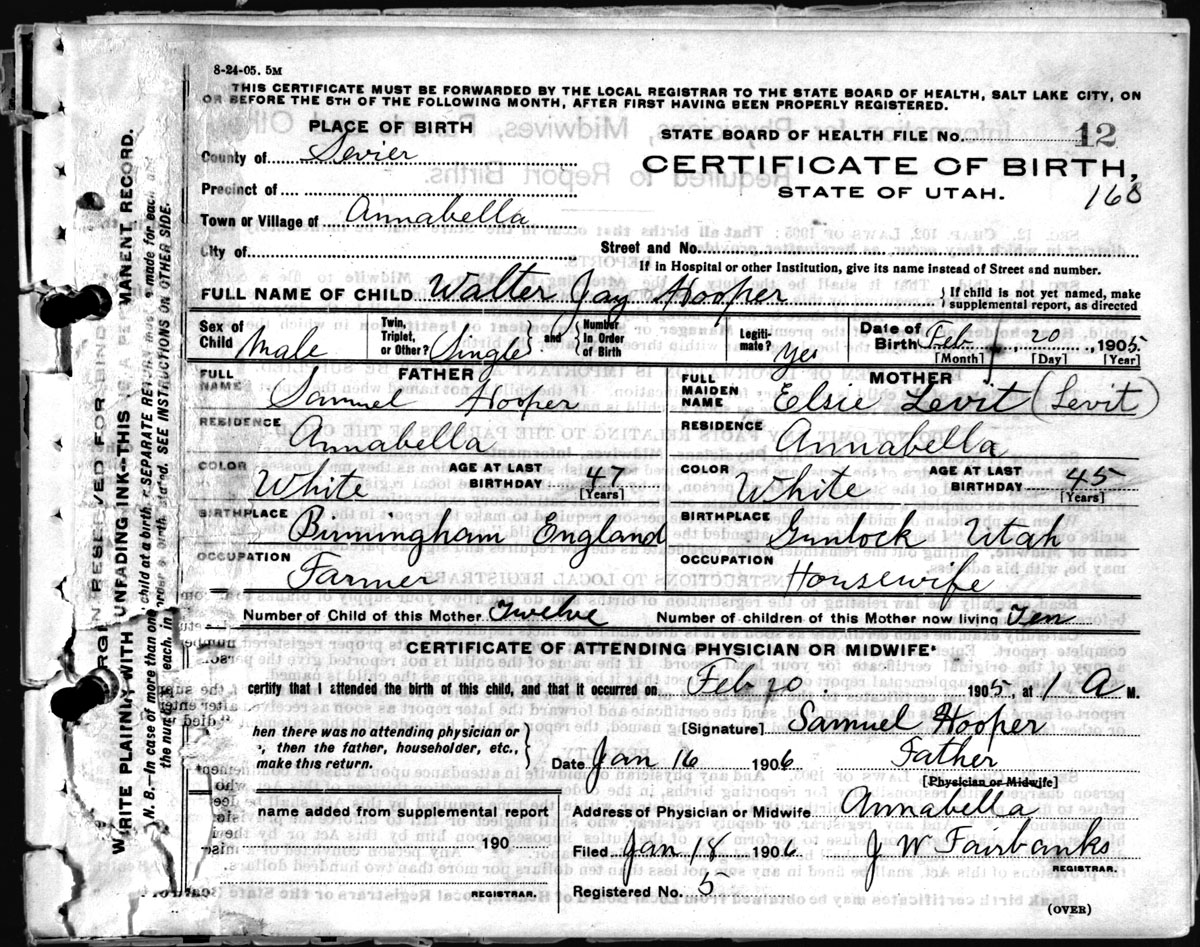 8-24-05. 5M
THIS CERTIFICATE MUST BE FORWARDED BY THE LOCAL REGISTRAR TO THE STATE BOARD OF HEALTH, SALT LAKE CITY, ON
OR BEFORE THE 5TH OF THE FOLLOWING MONTH, AFTER FIRST HAVING BEEN PROPERLY REGISTERED.
PLACE OF BIRTH
STATE BOARD OF HEALTH FILE No. 12
County of Sevier
CERTIFICATE OF BIRTH,
Precinct of
STATE OF UTAH.
168
Town or Village of Annabella
City of
Street and No.
If in Hospital or other Institution, give its name instead of Street and number.
FULL NAME OF CHILD Walter Jay Hooper
} If child is not yet named, make
supplemental report, as directed
Sex of Child Male
Twin, Triplet, or Other? (Single) and
{ Number In Order of Birth
Legiti- mate? Yes
Date of Birth Feb 20, 1905
[Month] [Day] [Year]
FATHER
FULL NAME Samuel Hooper
RESIDENCE Annabella
COLOR White
AGE AT LAST BIRTHDAY 47
[Years]
BIRTHPLACE Birmingham England
OCCUPATION Farmer
MOTHER
FULL MAIDEN NAME Elsie Levit (Levit)
RESIDENCE Annabella
COLOR White
AGE AT LAST BIRTHDAY 45
[Years]
BIRTHPLACE Gunlock Utah
OCCUPATION Housewife
Number of Child of this Mother Twelve
Number of children of this Mother now living Ten
CERTIFICATE OF ATTENDING PHYSICIAN OR MIDWIFE*
certify that I attended the birth of this child, and that it occurred on Feb 20. 1905, at 1 A M.
[Signature] Samuel Hooper
hen there was no attending physician or
, then the father, householder, etc.,
make this return.
Date Jan 16 1906
Father
[Physician or Midwife]
Address of Physician or Midwife Annabella
name added from supplemental report
190
Filed Jan 18 1906
J W Fairbanks
REGISTRAR.
Registered No. 5
REGISTRAR.
(OVER)
RGIN RESERVED FOR BINDING
WRITE PLAINLY WITH UNFADING INK--THIS IS A PERMANENT RECORD.
N. B.--In case of more than one child at a birth, a SEPARATE RETURN must be made for each and
the number of each, in order of birth, stated. SEE INSTRUCTIONS ON OTHER SIDE.